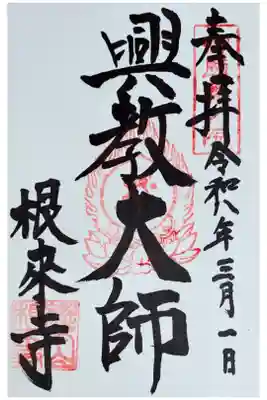 奉拝
令和八年三月一日
興教大師
根来寺